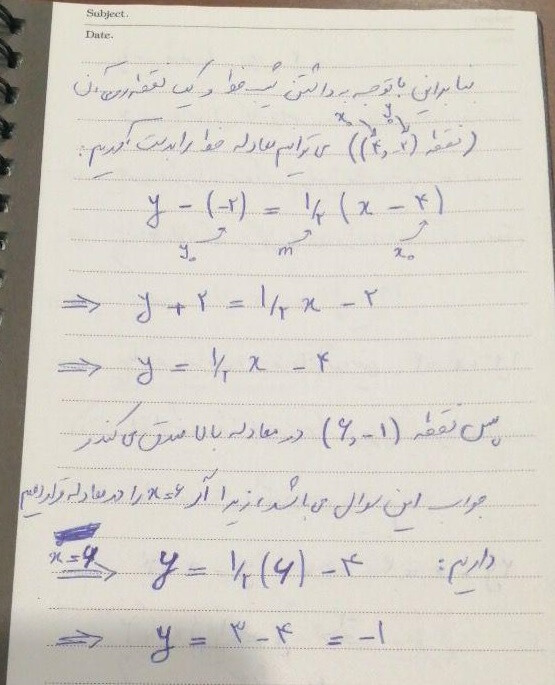 Subject.
Date.
بنابراین با توجه به داشتن شیب خط و یک نقطه روی آن
x₀ y₀
(نقطه (۴,-۲)) می توانیم معادله خط را بدست آوریم:
y - (-۲) = ۱/۲ (x - ۴)
y₀ m x₀
⇒ y + ۲ = ۱/۲ x - ۲
⇒ y = ۱/۲ x - ۴
پس نقطه (۶,-۱) در معادله بالا صدق می کند
جواب این سوال می باشد، زیرا اگر x=۶ را در معادله قرار دهیم
داریم: x=۶ ⇒ y = ۱/۲(۶) - ۴
⇒ y = ۳ - ۴ = -۱